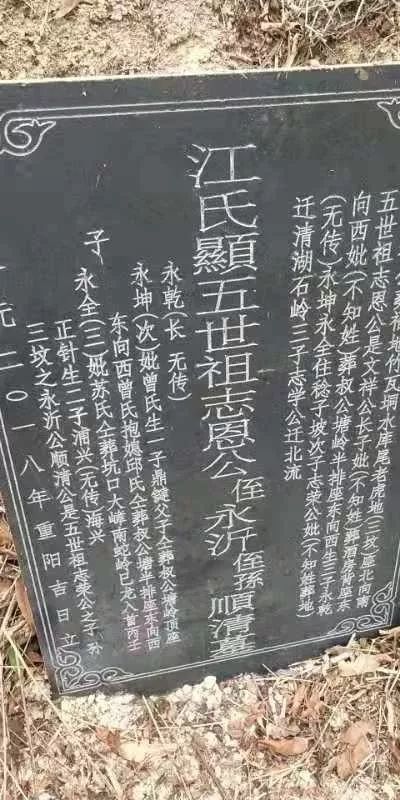 五世祖志恩公是文祥公长子妣(不知姓)葬酒房背座东
向西妣(不知姓)葬叔公塘岭半排座东向西生三子永乾
(无传)永坤永全住稔子坡次子志荣公妣(不知姓葬地)
迁清湖石岭三子志学公迁北流
江氏顯五世祖志恩公侄永沂侄孫順清墓
永乾(长 无传)
永坤(次)妣曾氏生一子鼎键父子仝葬叔公塘岭顶座
东向西曾氏抱媳邱氏仝葬叔公塘半排座东向西
子 永全(三)妣苏氏仝葬坑口大嶂南蛇岭巳龙入首丙壬
正针生二子浦兴(无传)海兴
三坟之永沂公顺清公是五世祖志荣公之子 孙
元二〇一八年重阳吉日立